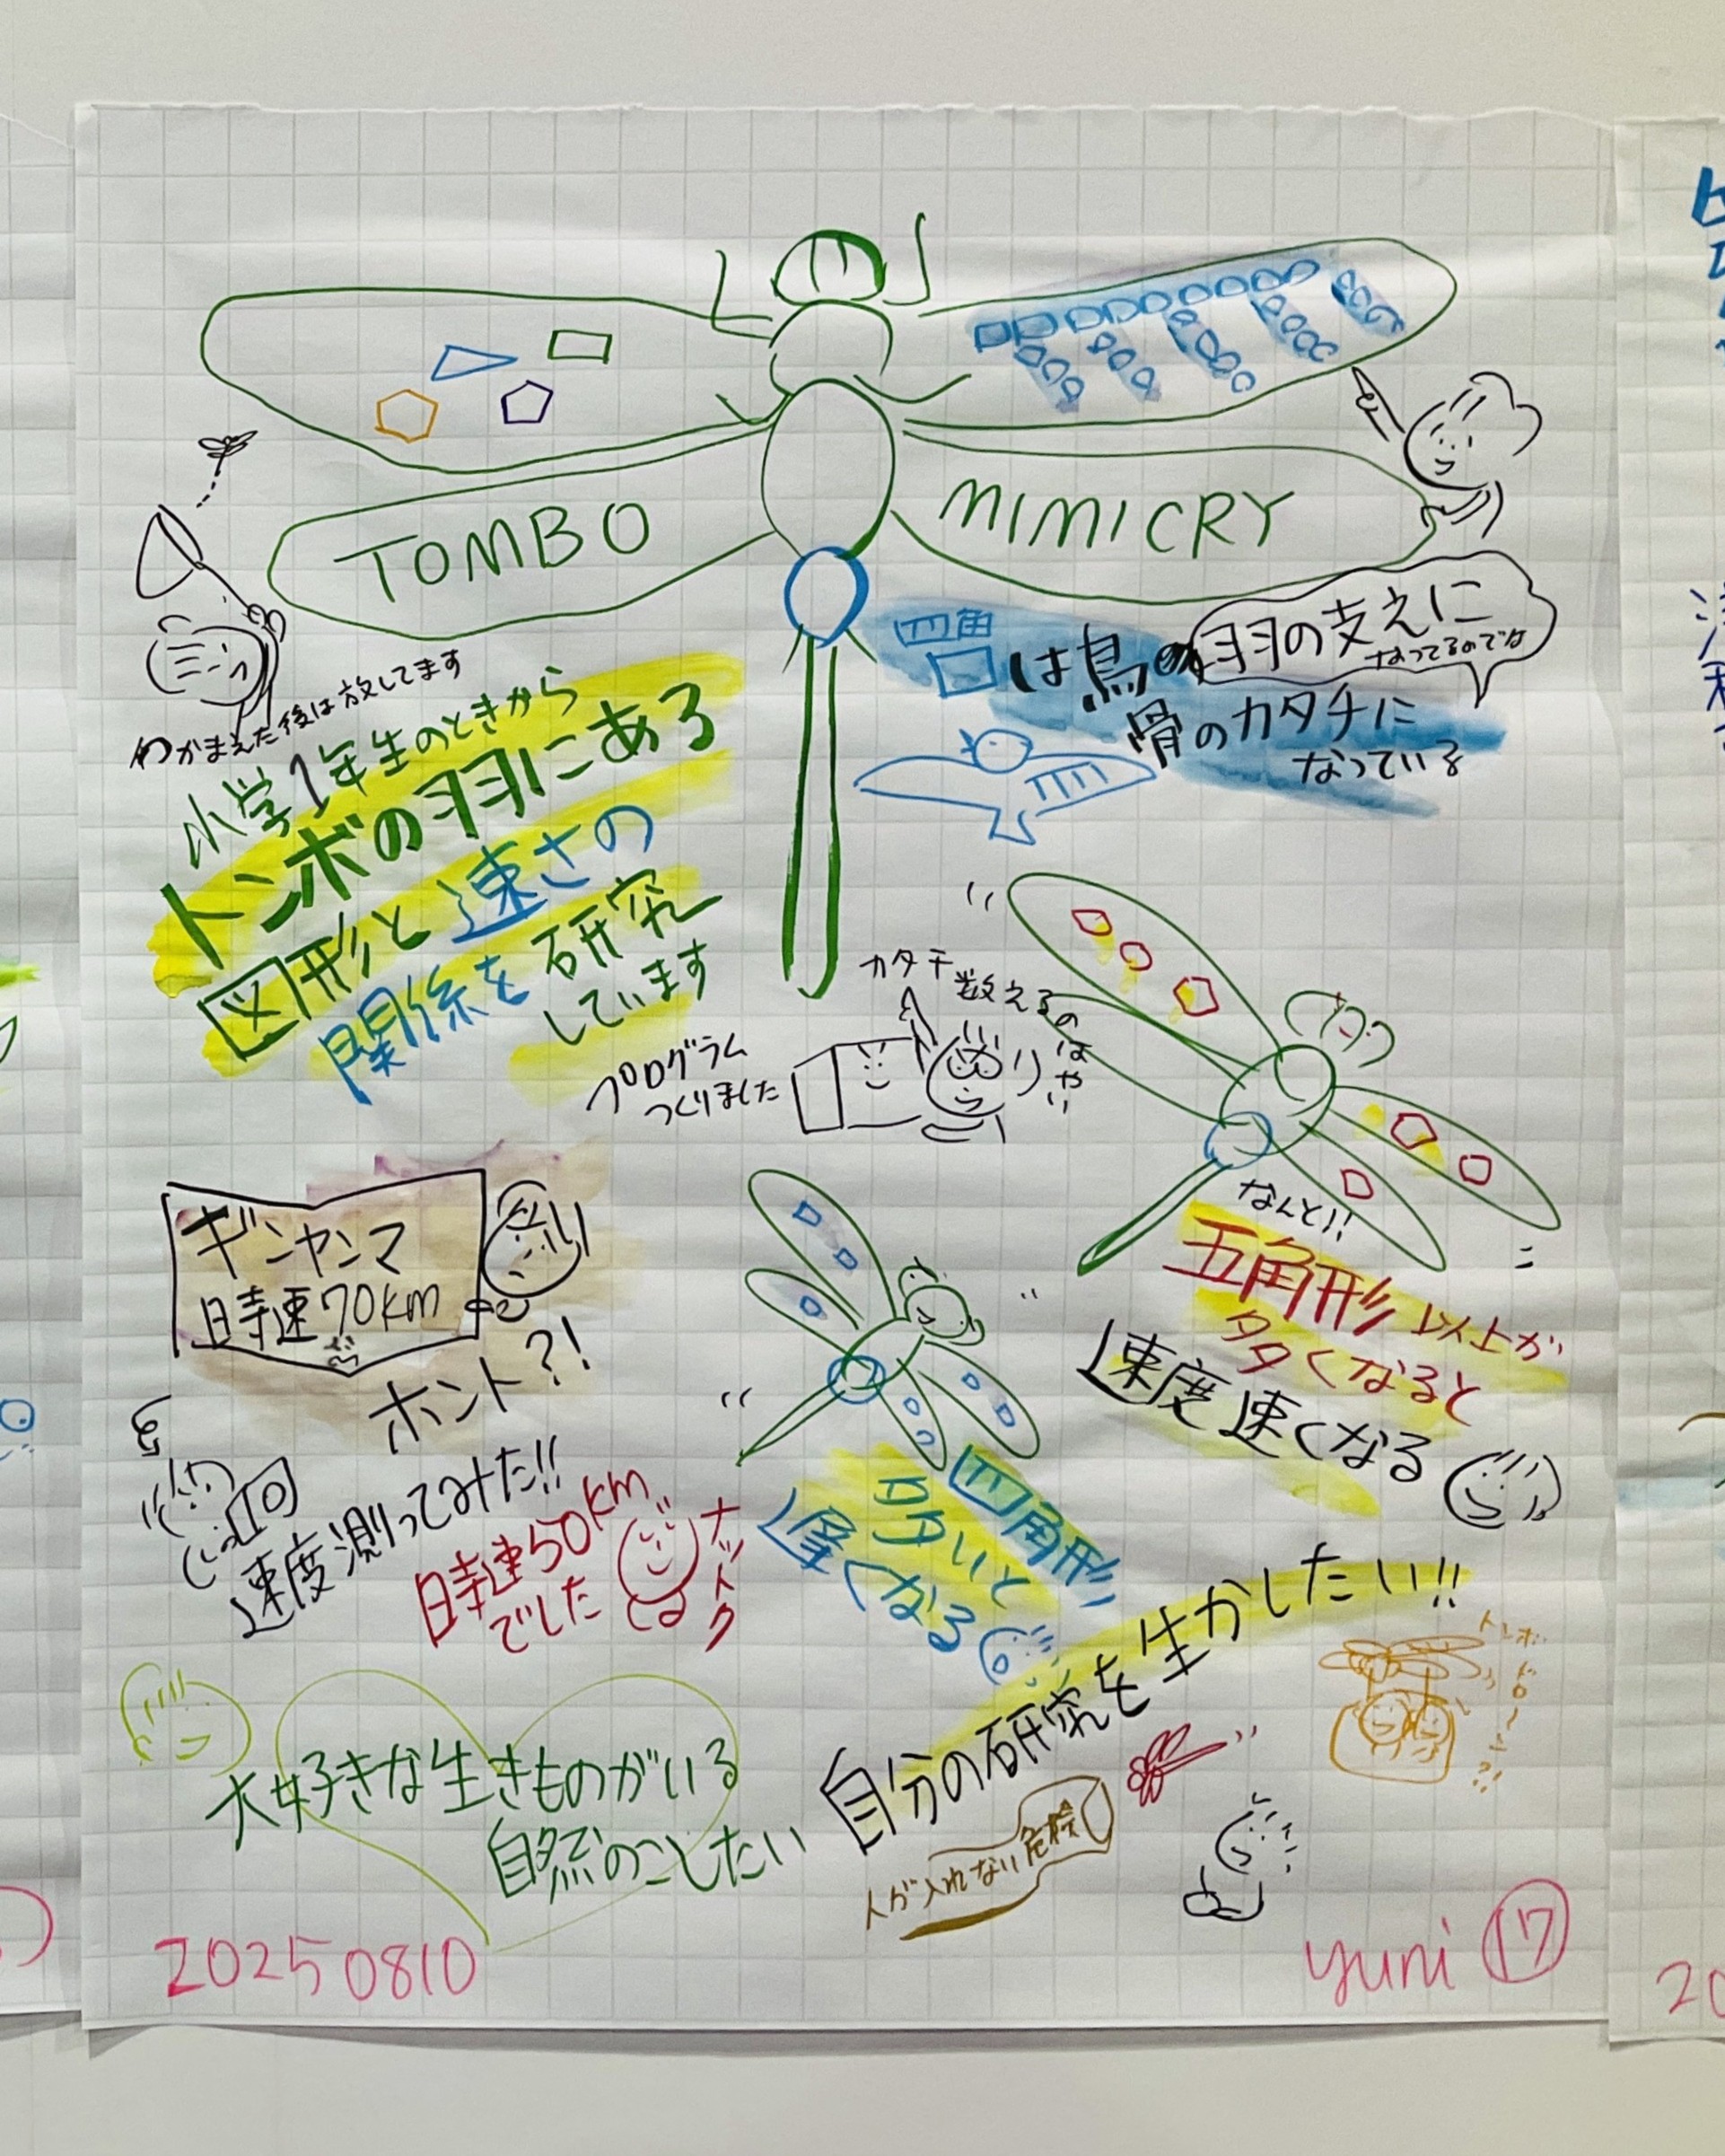 TOMBO
MIMICRY
つかまえた後は放してます
小学1年生のときから
トンボの羽にある
図形と速さの
関係を研究
しています
四角
は鳥の羽の支えに
なってるのでな
骨のカタチに
なっている
プログラム
つくりました
カタチ数えるの
はやい
ギンヤンマ
時速70km
ホント?!
速度測ってみた!!
時速50km
でした
ナットク
なんと!!
五角形以上が
多くなると
速度速くなる
四角形
多いと
遅くなる
大好きな生きものがいる
自然のこしたい
自分の研究を生かしたい!!
人が入れない危険
トンボ
ドローン?!
20250810
yuni 17